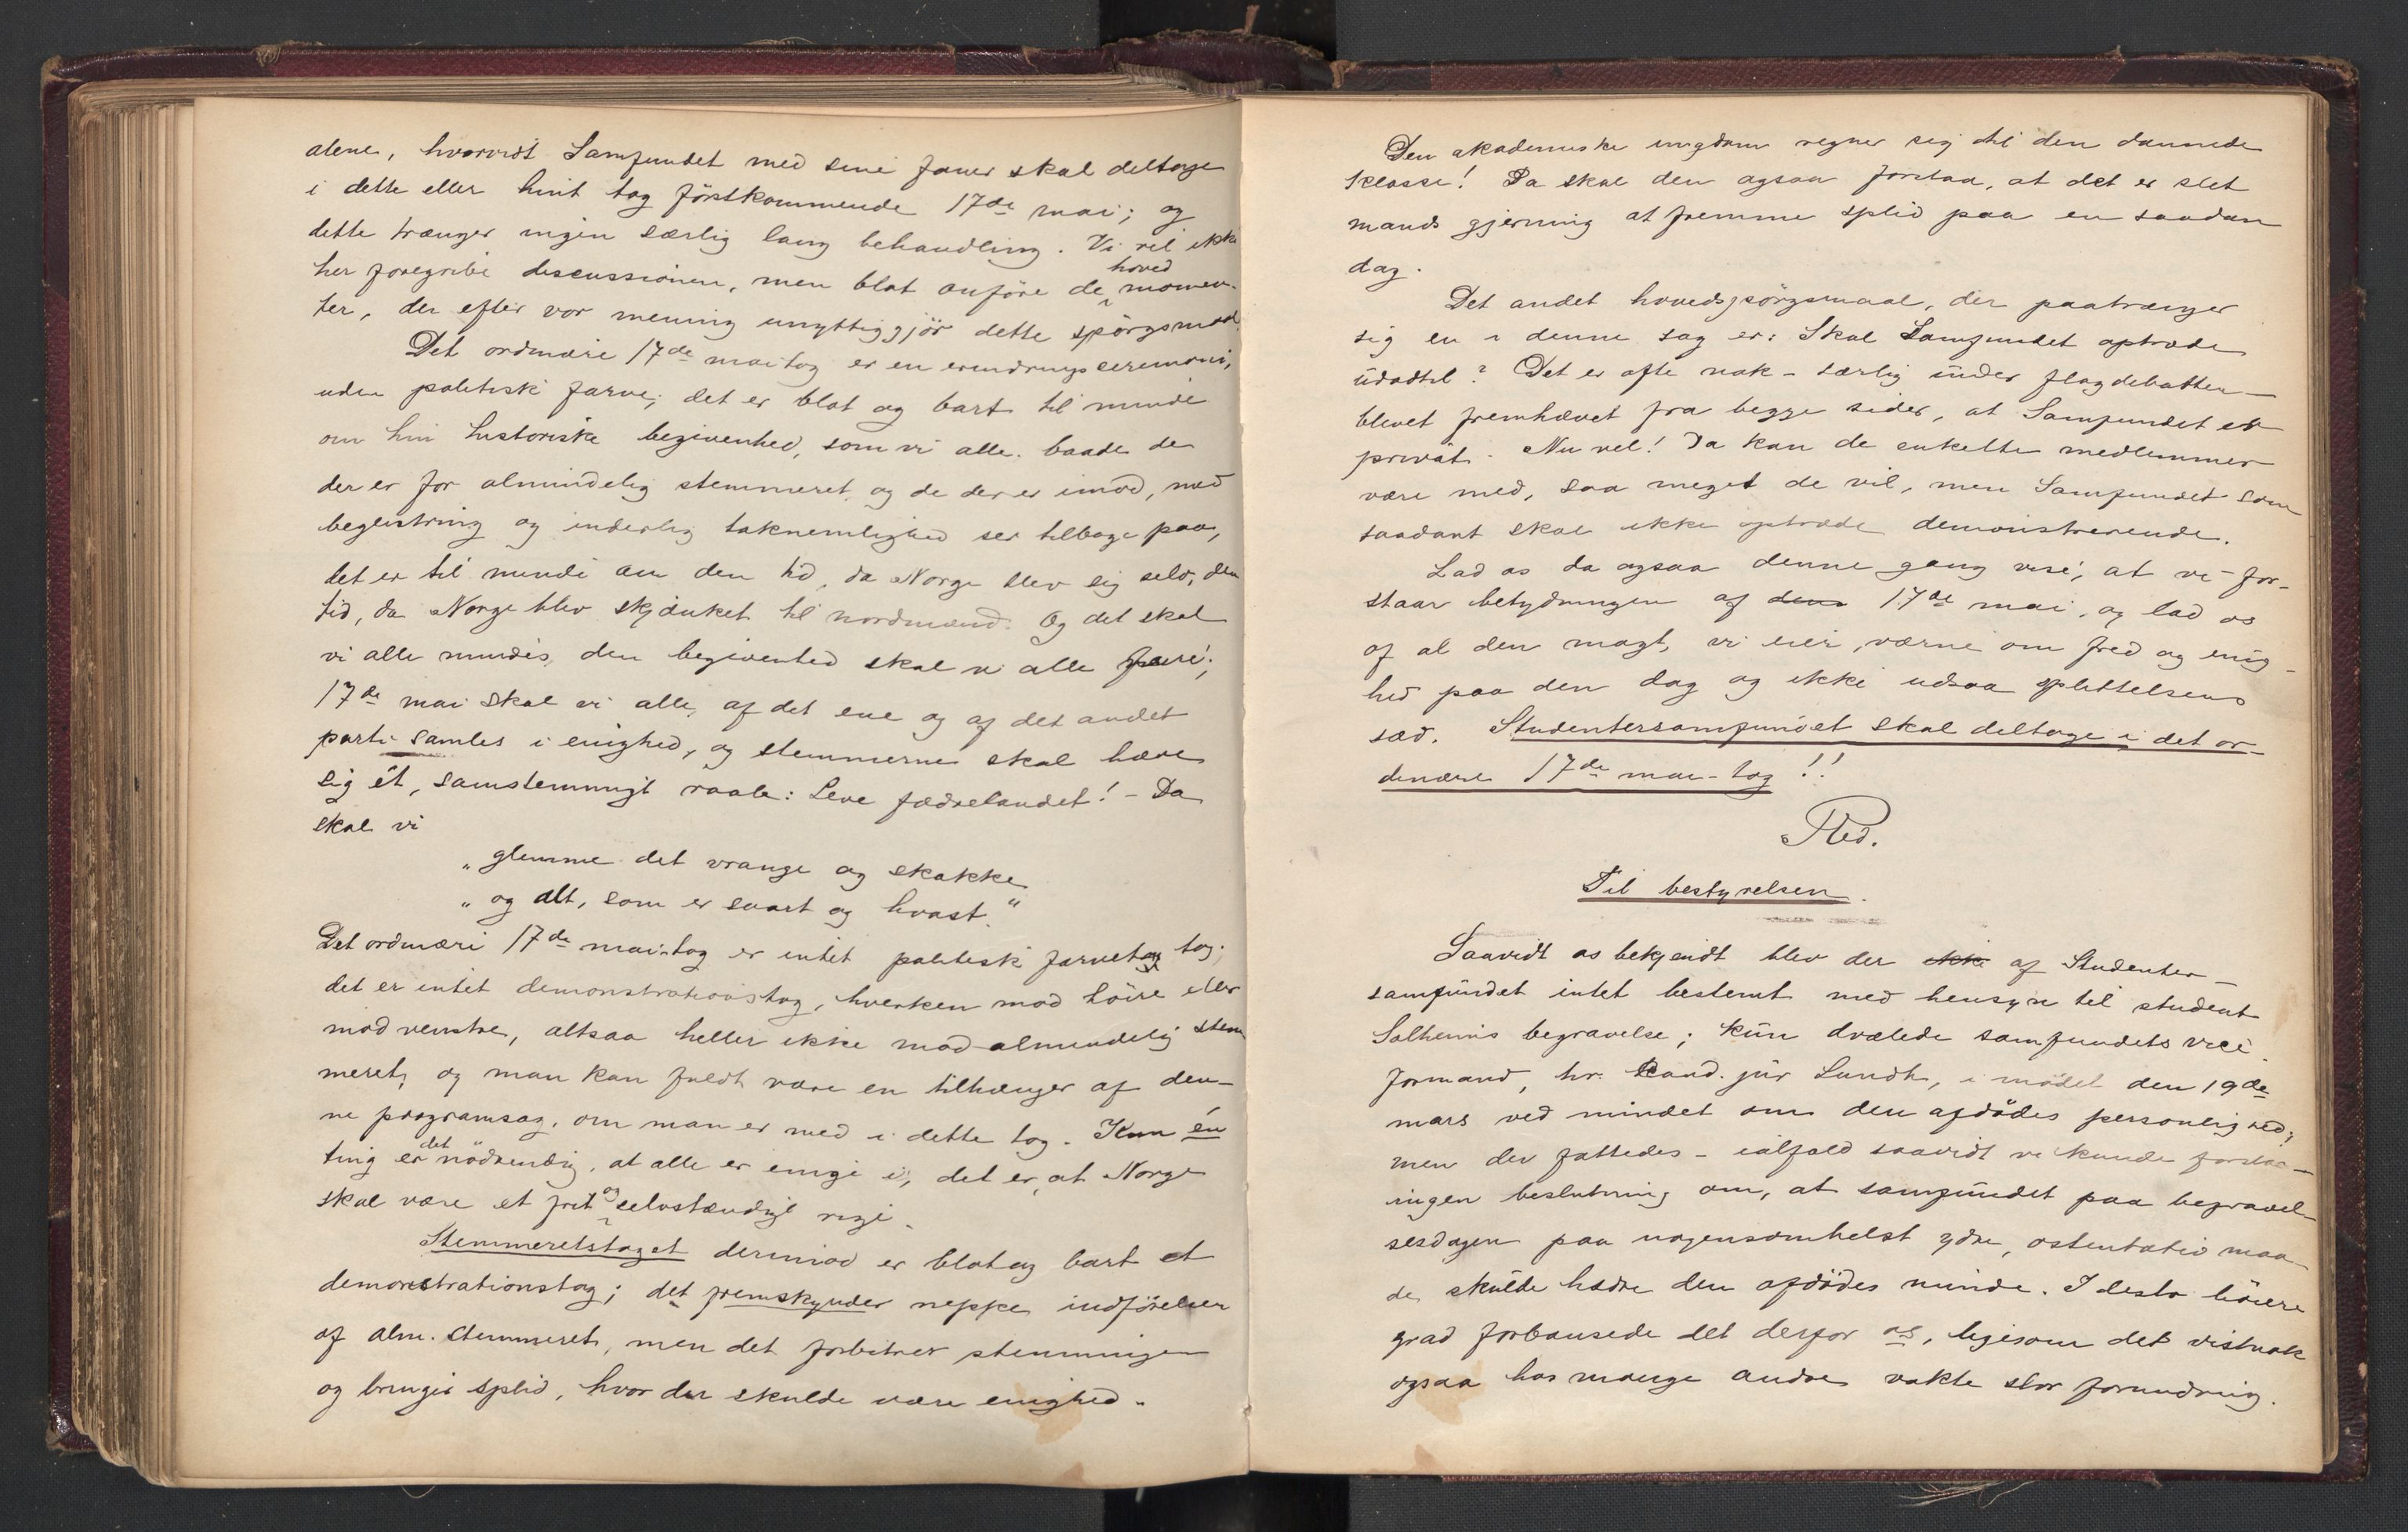 alene, hvorvidt Samfundet med sine faner skal deltage
i dette eller hint tog förstkommende 17de mai; og
dette trænger ingen særlig lang behandling. Vi vil ikke
her foregribe discussionen, men blot anföre de hoved momen-
ter, der efter vor mening unyttiggjör dette spörgsmaal.
Det ordinære 17de maitog er en erindringsceremoni,
uden politisk farve; det er blot og bart til minde
om hin historiske begivenhed, som vi alle, baade de
der er for almindelig stemmeret, og de der er imod, med
begeistring og inderlig taknemlighed ser tilbage paa,
det er til minde om den tid, da Norge blev sig selv, den
tid, da Norge blev skjænket til nordmænd. Og det skal
vi alle mindes, den begivenhed skal vi alle feire;
17de mai skal vi alle, af det ene og af det andet
parti samles i enighed, og stemmerne skal hæve
sig ét, samstemmigt raab: Leve fædrelandet! - Da
skal vi
„glemme det vrange og skakke
„og alt, som er svart og hvast."
Det ordinære 17de mai-tog er intet politisk farvet tog;
det er intet demonstrationstog, hverken mod höire eller
mod venstre, altsaa heller ikke mod almindelig stem
meret, og man kan fuldt være en tilhænger af den-
ne programsag, om man er med i dette tog. Kun én
ting er det nödvendig, at alle er enige i, det er, at Norge
skal være et frit og selvstændigt rige.
Stemmeretstoget derimod er blot og bart et
demonstrationstog; det fremskynder neppe indförelsen
af alm. stemmeret, men det forbitrer stemningen
og bringer splid, hvor der skulde være enighed.
Den akademiske ungdom regner sig til den dannede
klasse! Da skal den ogsaa forstaa, at det er slet
mands gjerning at fremme splid paa en saadan
dag.
Det andet hovedspörgsmaal, der paatrænger
sig en i denne sag er: Skal Samfundet optræde
udadtil? Det er ofte nok - særlig under flagdebatten -
blevet fremhævet fra begge sider, at Samfundet er
privat. Nu vel! Da kan de enkelte medlemmer
være med, saa meget de vil, men Samfundet som
saadant skal ikke optræde demonstrerende.
Lad os da ogsaa denne gang vise, at vi for-
staar betydningen af den 17de mai, og lad os
af al den magt, vi eier, værne om fred og enig-
hed paa den dag og ikke udsaa splittelsens
sæd. Studentersamfundet skal deltage i det or-
dinære 17de mai-tog!!
Red.
Til bestyrelsen.
Saavidt os bekjendt blev der ikke af Studenter
samfundet intet bestemt med hensyn til student
Solheims begravelse; kun dvælede samfundets vice
formand, hr. Cand. jur Lundh, i mödet den 19de
mars ved mindet om den afdödes personlighed;
men der fattedes - ialfald saavidt vi kunde forstaa -
ingen beslutning om, at samfundet paa begravel
sesdagen paa nogensomhelst ydre, ostentativ maa
de skulde hædre den afdödes minde. I desto höiere
grad forbausede det derfor os, ligesom det vistnok
ogsaa hos mange andre vakte stor forundring.